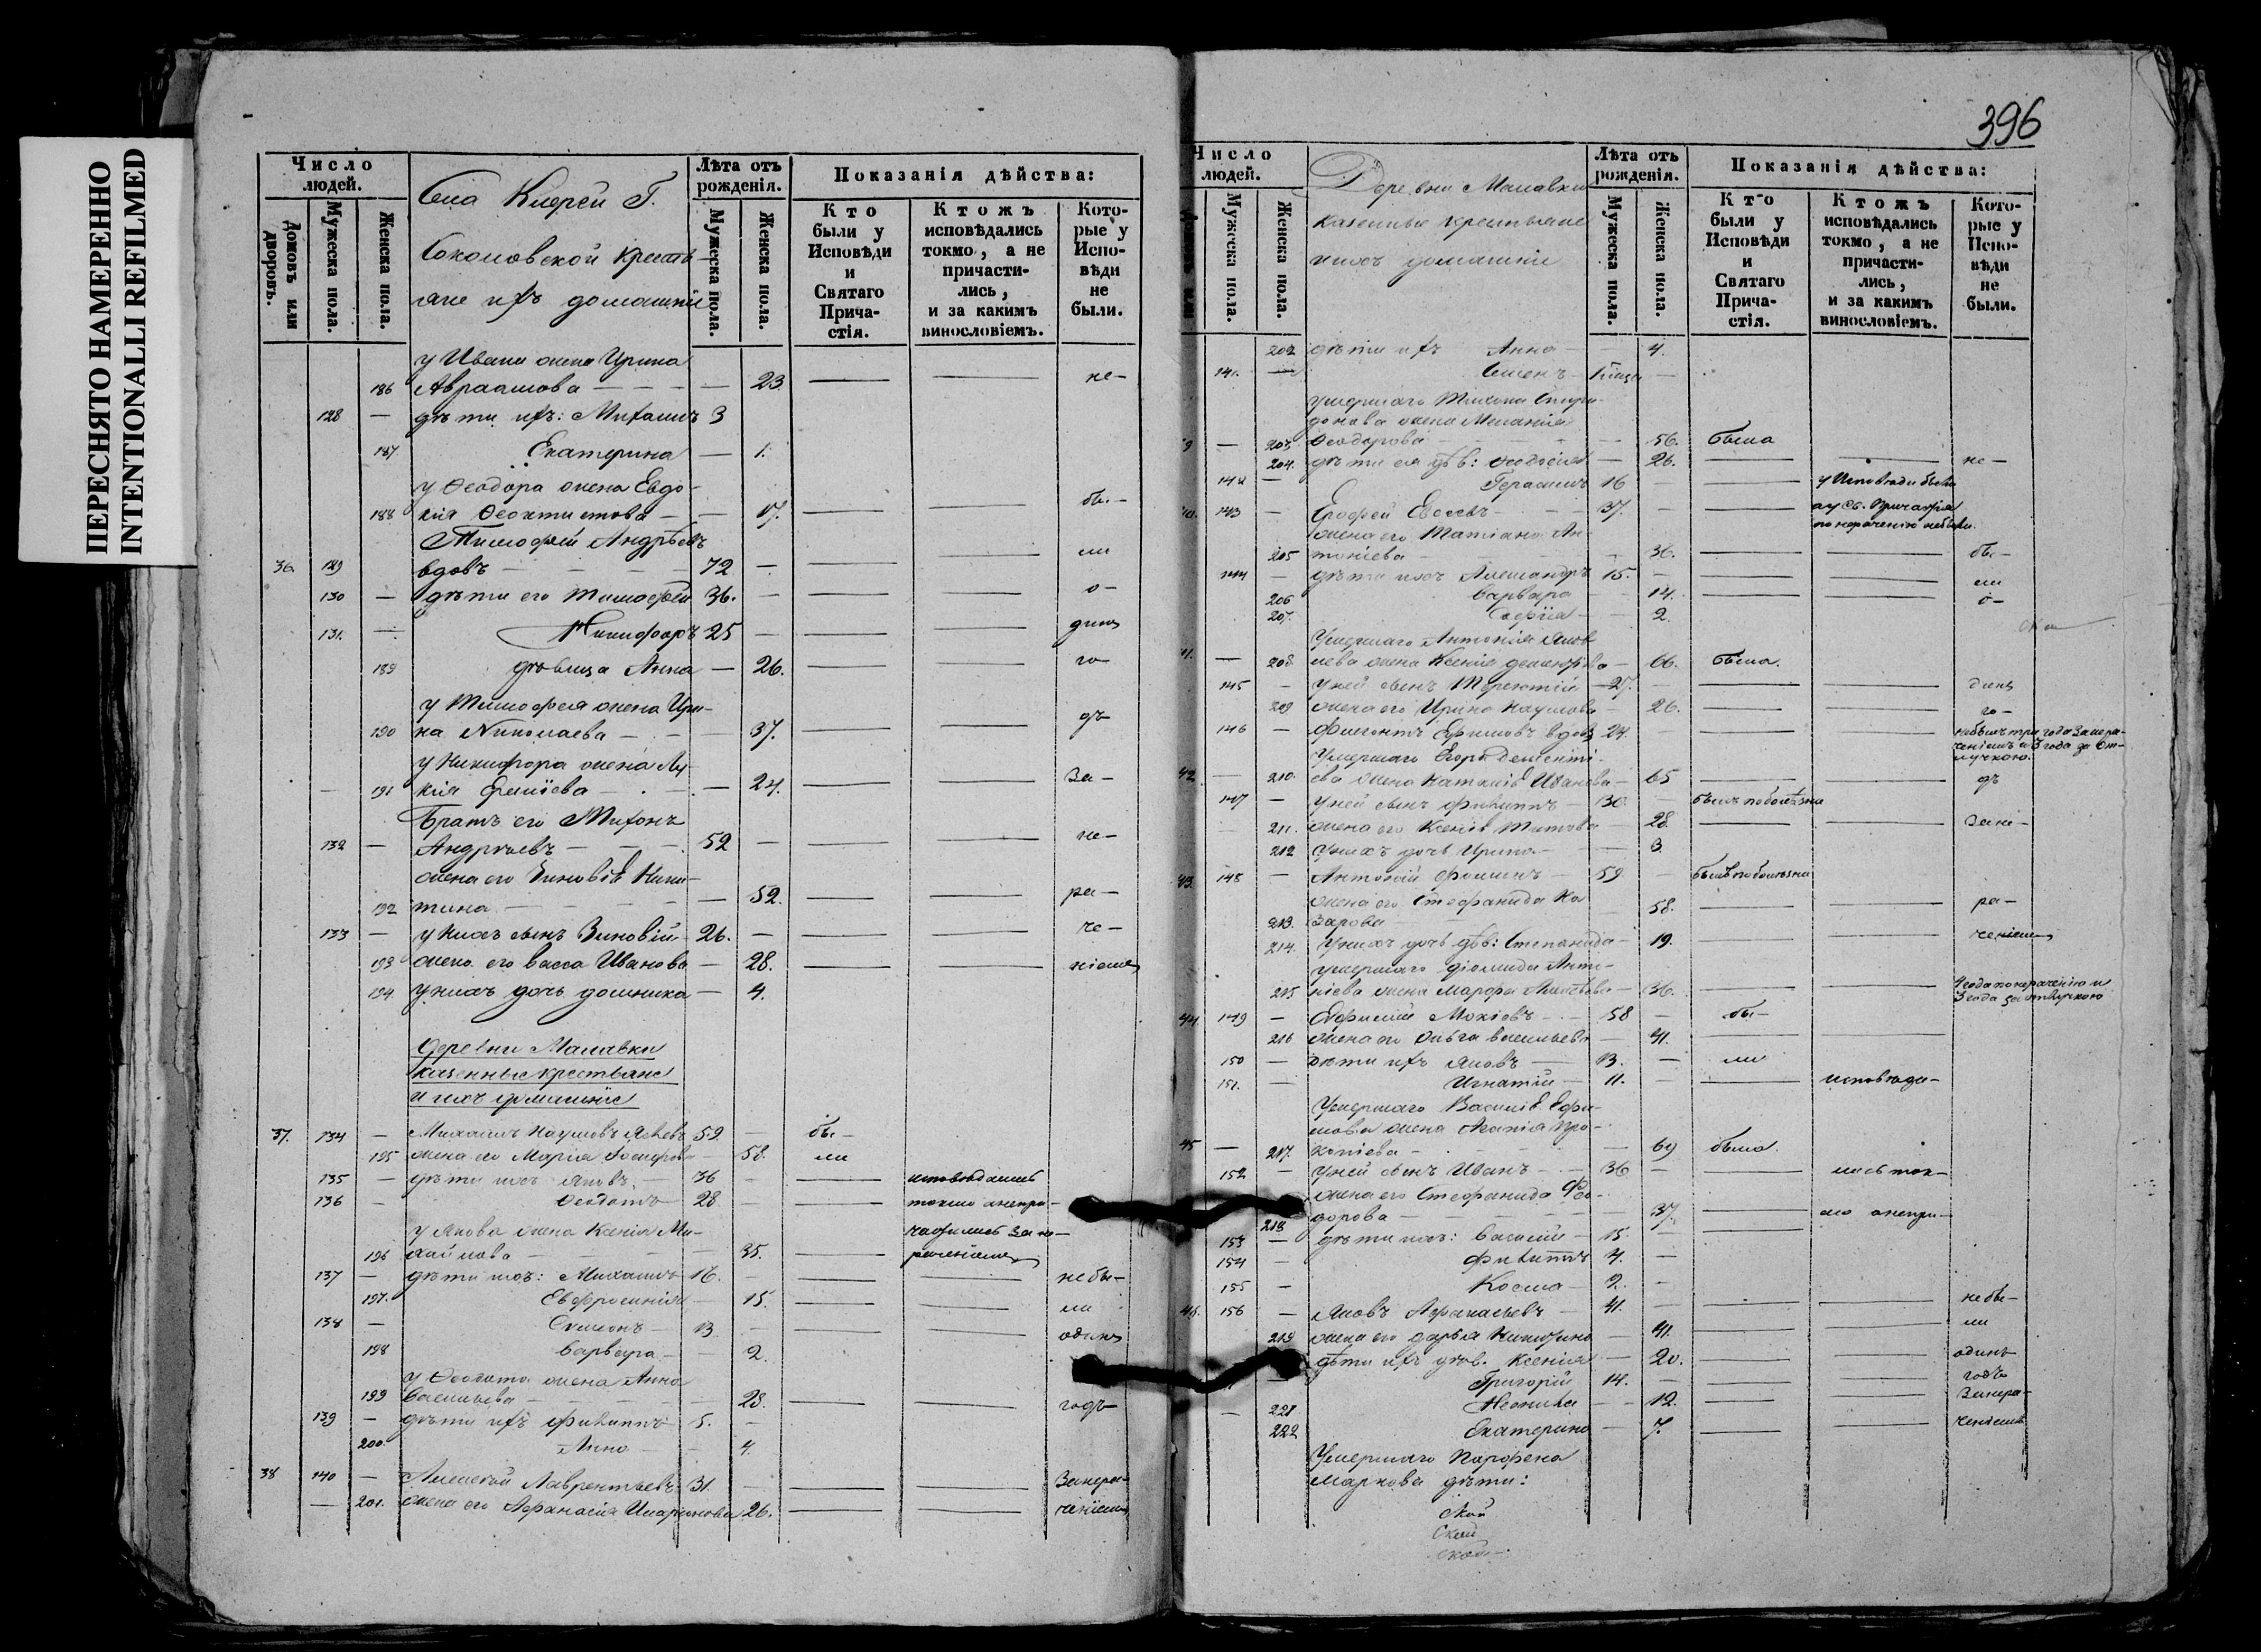 ПЕРЕСНЯТО НАМЕРЕННО
INTENTIONALLI REFILMED
396
Число людей.
Домовъ или дворовъ.
Мужеска пола.
Женска пола.
Лѣта отъ рожденія.
Мужеска пола.
Женска пола.
Показанія дѣйства:
Кто были у Исповѣди и Святаго Прича-стія.
Ктожъ исповѣдались токмо, а не причасти-лись, и за какимъ винословіемъ.
Кото-рые у Испо-вѣди не были.
Села
Соколовской крестья-
яне ихъ домашніе
у Ивана жена Ирина
186 Авраамова — — 23. — — не-
128 — дѣти ихъ: Михаилъ 3
187 Екатерина — 1.
у Ѳеодора жена Евдо-
188 кія Ѳеоктистова — 17. — — бы-
Тимофей Андрѣевъ
36 129 вдовъ — 72 — — — ли
130 — дѣти его Тимофей 36. — — — о-
131. — Никифоръ 25 — — — динъ
189 дѣвица Анна — 26. — — го-
у Тимофея жена Ири-
190 на Николаева — 37. — — дъ
у Никифора жена Лу-
— 191 кія — 24. — — За-
Братъ его
132 — Андрѣевъ — 52 — — — не-
жена его Зиновія Ники-
192 тина — — 52. — — ра-
133 — у нихъ сынъ Зиновій 26. — — — че-
193 жена его Васса Иванова — 28. — — ніемъ
194 у нихъ дочь Домника — 4.
Деревни Малавки
казенные крестьяне
и ихъ домашніе
37. 134 — Михаилъ Наумовъ 59. — бы-
195 жена его Марія — 58. ли
135 — дѣти ихъ Яковъ 36 — — исповѣдались
136 — Ѳеодотъ 28 — — токмо анепри-
у Якова жена Ксенія Ми-
196 хайлова — 35. — рачениемъ
137 — дѣти ихъ: Михаилъ 16. — — — небы-
197. Евфросинія — 15. — — ли
138 — Симеонъ 13 — — — одинъ
198 Варвара — 2.
у Ѳеодота жена Анна
199 Васильева — 28. — — годъ
139 — дѣти ихъ Филиппъ 5. —
200. Анна — 4.
38 140 — Алексѣй Лаврентьевъ 31. — — — Занера-
— 201. жена его Афанасія Иларионова 26. — — ченіемъ
Число людей.
Мужеска пола.
Женска пола.
Деревни Малавки
казенные крестьяне
ихъ домашніе
Лѣта отъ рожденія.
Мужеска пола.
Женска пола.
Показанія дѣйства:
Кто были у Исповѣди и Святаго Прича-стія.
Ктожъ исповѣдались токмо, а не причасти-лись, и за какимъ винословіемъ.
Кото-рые у Испо-вѣди не были.
202 дѣти ихъ Анна — 4.
141. — Семенъ —
умершаго Тихона Спири-
донова жена Меланія
— 203. Ѳеодорова — 56. была
204. дѣти ея дѣв: Ѳеодосія — 26. — — не-
142 — Герасимъ 16 — — у Исповѣди были
143 — Ерофей 37. — — а у Св. Причастія
жена его Татіана Ан- по нераченію небыли.
205 тоніева — 36. — — бы-
144 — дѣти ихъ Александръ 15. — — — ли
206 Варвара — 14. — — о-
207. Софія — 2.
Умершаго Антонія Яков
— 208. лева жена Ксенія — 66. была.
145 — у ней сынъ Терентій 27. — — — динъ
209 жена его Ирина Наумова — 26. — — го-
146 — Ефимовъ вдовъ 24. — — — небылъ три года Занера-
ченіемъ и 3 года за от-
лучкою.
Умершаго Егора Дементі-
42 — 210. ева жена Наталія Иванова — 65 — — дъ
147 — у ней сынъ Филиппъ 30. — былъ поболѣзни
211. жена его Ксенія Титова — 28. — — Зане-
212 у нихъ дочь Ирина — 3.
43. 148 — Антоній 59. — былъ поболѣзни
жена его Стефанида На
213. зарова — 58. — — ра-
214. у нихъ дочь дѣв: Степанида — 19. — — ченіемъ
умершаго Діомида Анто-
215 ніева жена Марфа — 36. — — 4 года по нераченію и
3 года за отлучкою
44 149 — Ефимій Мокіевъ 58 — бы-
216 жена его Ольга Васильева — 41. — —
150 — дѣти ихъ Яковъ 13. — ли
151. — Игнатій 11. — — исповѣда-
Умершаго Василія Ефи-
мова жена Агапія Про-
45 — 217. копіева — 69 была.
152 — у ней сынъ Иванъ 36 — — лись ток-
жена его Стефанида Фео-
218 дорова — 37. — мо анепри-
153 — дѣти ихъ: Василій 15. —
154 — Филиппъ 4. —
155 — Косма 2. —
46. 156 — Яковъ Афанасьевъ 41. — — — небы-
219 жена его Дарья Никифорова — 41. — — ли
дѣти ихъ дѣв. Ксенія — 20. — — одинъ
— Григорій 14. — — — годъ
— 221 — 12. — — Занера-
222 Екатерина — 7. — — ченіемъ
Умершаго Парфена
Маркова дѣти: